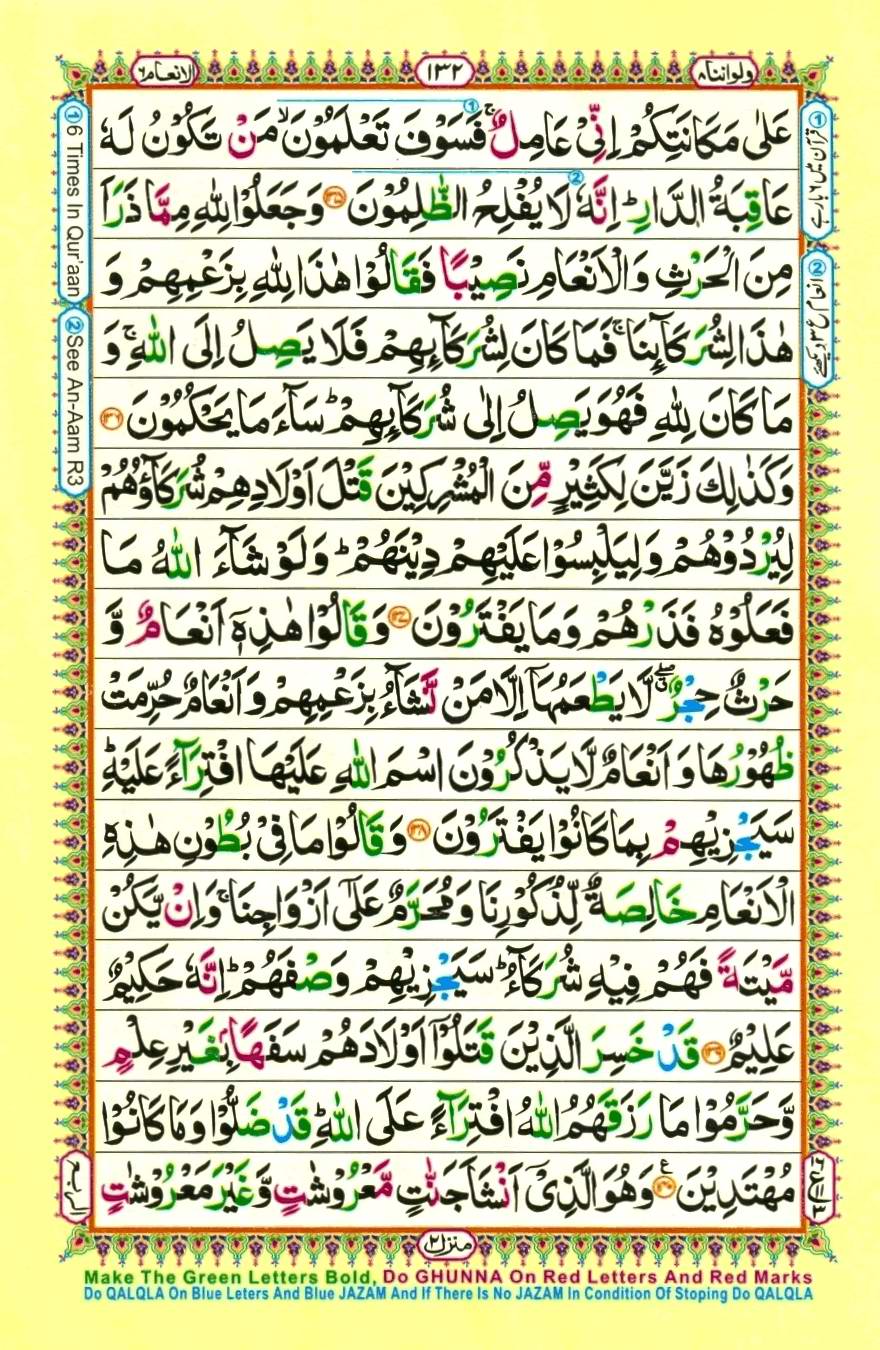 ولواننا ٨
١٣٢
الانعام ٦
عَلٰى مَكَانَتِكُمْ اِنِّىْ عَامِلٌ ۚ فَسَوْفَ تَعْلَمُوْنَ ۙ مَنْ تَكُوْنُ لَهٗ
عَاقِبَةُ الدَّارِ ؕ اِنَّهٗ لَا يُفْلِحُ الظّٰلِمُوْنَ ﴿۱۳۵﴾ وَجَعَلُوْا لِلّٰهِ مِمَّا ذَرَاَ
مِنَ الْحَرْثِ وَالْاَنْعَامِ نَصِيْبًا فَقَالُوْا هٰذَا لِلّٰهِ بِزَعْمِهِمْ وَ
هٰذَا لِشُرَكَآئِنَا ۚ فَمَا كَانَ لِشُرَكَآئِهِمْ فَلَا يَصِلُ اِلَى اللّٰهِ ۚ وَ
مَا كَانَ لِلّٰهِ فَهُوَ يَصِلُ اِلٰى شُرَكَآئِهِمْ ؕ سَآءَ مَا يَحْكُمُوْنَ ﴿۱۳۶﴾
وَكَذٰلِكَ زَيَّنَ لِكَثِيْرٍ مِّنَ الْمُشْرِكِيْنَ قَتْلَ اَوْلَادِهِمْ شُرَكَآؤُهُمْ
لِيُرْدُوْهُمْ وَلِيَلْبِسُوْا عَلَيْهِمْ دِيْنَهُمْ ؕ وَلَوْ شَآءَ اللّٰهُ مَا
فَعَلُوْهُ فَذَرْهُمْ وَمَا يَفْتَرُوْنَ ﴿۱۳۷﴾ وَقَالُوْا هٰذِهٖٓ اَنْعَامٌ وَّ
حَرْثٌ حِجْرٌ ۖ لَّا يَطْعَمُهَآ اِلَّا مَنْ نَّشَآءُ بِزَعْمِهِمْ وَاَنْعَامٌ حُرِّمَتْ
ظُهُوْرُهَا وَاَنْعَامٌ لَّا يَذْكُرُوْنَ اسْمَ اللّٰهِ عَلَيْهَا افْتِرَآءً عَلَيْهِ ؕ
سَيَجْزِيْهِمْ بِمَا كَانُوْا يَفْتَرُوْنَ ﴿۱۳۸﴾ وَقَالُوْا مَا فِىْ بُطُوْنِ هٰذِهِ
الْاَنْعَامِ خَالِصَةٌ لِّذُكُوْرِنَا وَمُحَرَّمٌ عَلٰٓى اَزْوَاجِنَا ۚ وَاِنْ يَّكُنْ
مَّيْتَةً فَهُمْ فِيْهِ شُرَكَآءُ ؕ سَيَجْزِيْهِمْ وَصْفَهُمْ ؕ اِنَّهٗ حَكِيْمٌ
عَلِيْمٌ ﴿۱۳۹﴾ قَدْ خَسِرَ الَّذِيْنَ قَتَلُوْٓا اَوْلَادَهُمْ سَفَهًاۢ بِغَيْرِ عِلْمٍ
وَّحَرَّمُوْا مَا رَزَقَهُمُ اللّٰهُ افْتِرَآءً عَلَى اللّٰهِ ؕ قَدْ ضَلُّوْا وَمَا كَانُوْا
مُهْتَدِيْنَ ﴿۱۴۰﴾ وَهُوَ الَّذِىْٓ اَنْشَاَ جَنّٰتٍ مَّعْرُوْشٰتٍ وَّغَيْرَ مَعْرُوْشٰتٍ
① قرآن میں ۶ بار ہے
② انعام ع ۳ دیکھئے
① 6 Times In Qur'aan
② See An-Aam R3
منزل ٢
Make The Green Letters Bold, Do GHUNNA On Red Letters And Red Marks
Do QALQLA On Blue Leters And Blue JAZAM And If There Is No JAZAM In Condition Of Stoping Do QALQLA